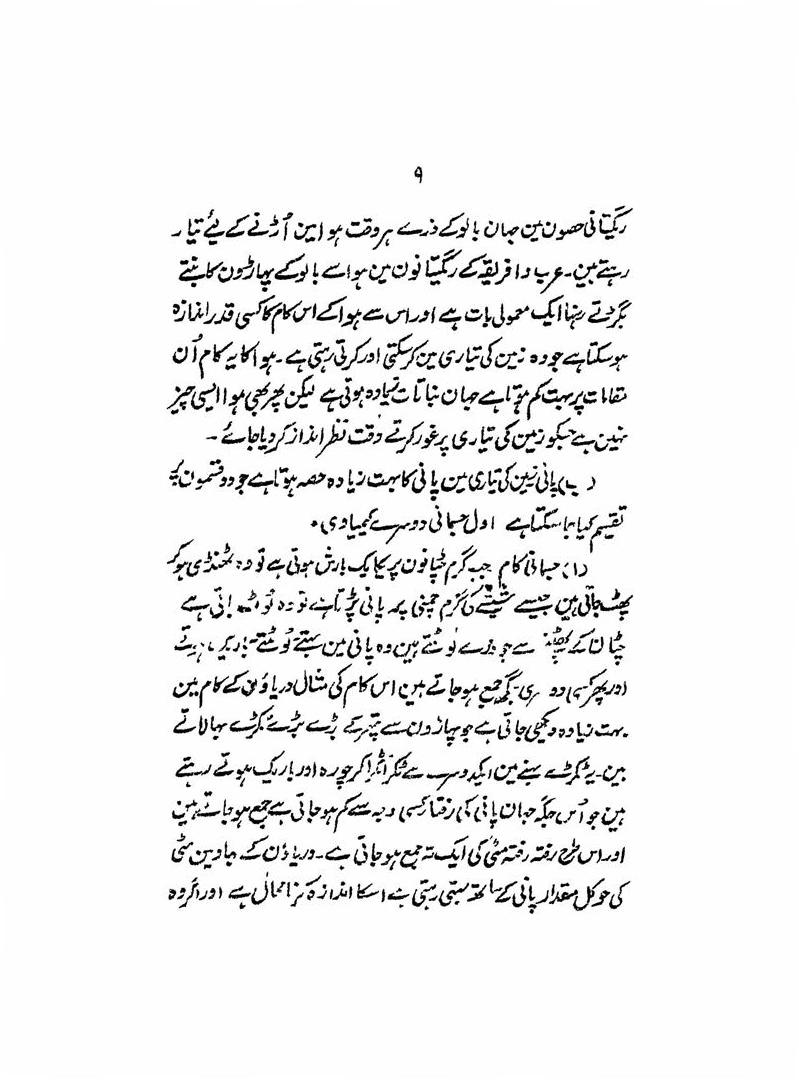 ۹
ریگستانی حصون مین جہان بالو کے ذرے ہر وقت ہوا مین اُڑنے کے لیے تیار
رہتے ہین۔ عرب و افریقہ کے ریگستانون مین ہوا سے بالو کے پہاڑون کا بنتے
بگڑتے رہنا ایک معمولی بات ہے اور اس سے ہوا کے اس کام کا کسی قدر اندازہ
ہو سکتا ہے جو وہ زمین کی تیاری مین کر سکتی اور کرتی رہتی ہے۔ ہوا کا یہ کام اُن
مقامات پر بہت کم ہوتا ہے جہان نباتات زیادہ ہوتی ہے لیکن پھر بھی ہوا ایسی چیز
نہین ہے جسکو زمین کی تیاری پر غور کرتے وقت نظر انداز کر دیا جائے۔
(ب) پانی زمین کی تیاری مین پانی کا بہت زیادہ حصہ ہوتا ہے جو دو قسمون پر
تقسیم کیا جا سکتا ہے اول جسمانی دوسرے کیمیاوی۔
(۱) جسمانی کام جب گرم چٹانون پر یکایک بارش ہوتی ہے تو وہ ٹھنڈی ہو کر
پھٹ جاتی ہین جیسے شیشے کی گرم چمنی پر پانی پڑتا ہے تو وہ ٹوٹ جاتی ہے
چٹان کے پھٹنے سے جو ذرے ٹوٹتے ہین وہ پانی مین بہتے ٹوٹتے
اور پھر کسی دوسری جگہ جمع ہو جاتے ہین اس کام کی مثال دریاؤن کے کام مین
بہت زیادہ دیکھی جاتی ہے جو پہاڑون سے پتھر کے بڑے بڑے ٹکڑے بہا لاتے
ہین۔ یہ ٹکڑے بہنے مین ایک دوسرے سے ٹکرا ٹکرا کر چورہ اور باریک ہوتے رہتے
ہین جو اُس جگہ جہان پانی کی رفتار کسی وجہ سے کم ہو جاتی ہے جمع ہو جاتے ہین
اور اس طرح رفتہ رفتہ مٹی کی ایک تہ جمع ہو جاتی ہے۔ دریاؤن کے بہاؤ مین مٹی
کی جو کل مقدار پانی کے ساتھ بہتی رہتی ہے اسکا اندازہ کرنا محال ہے اور اگر وہ